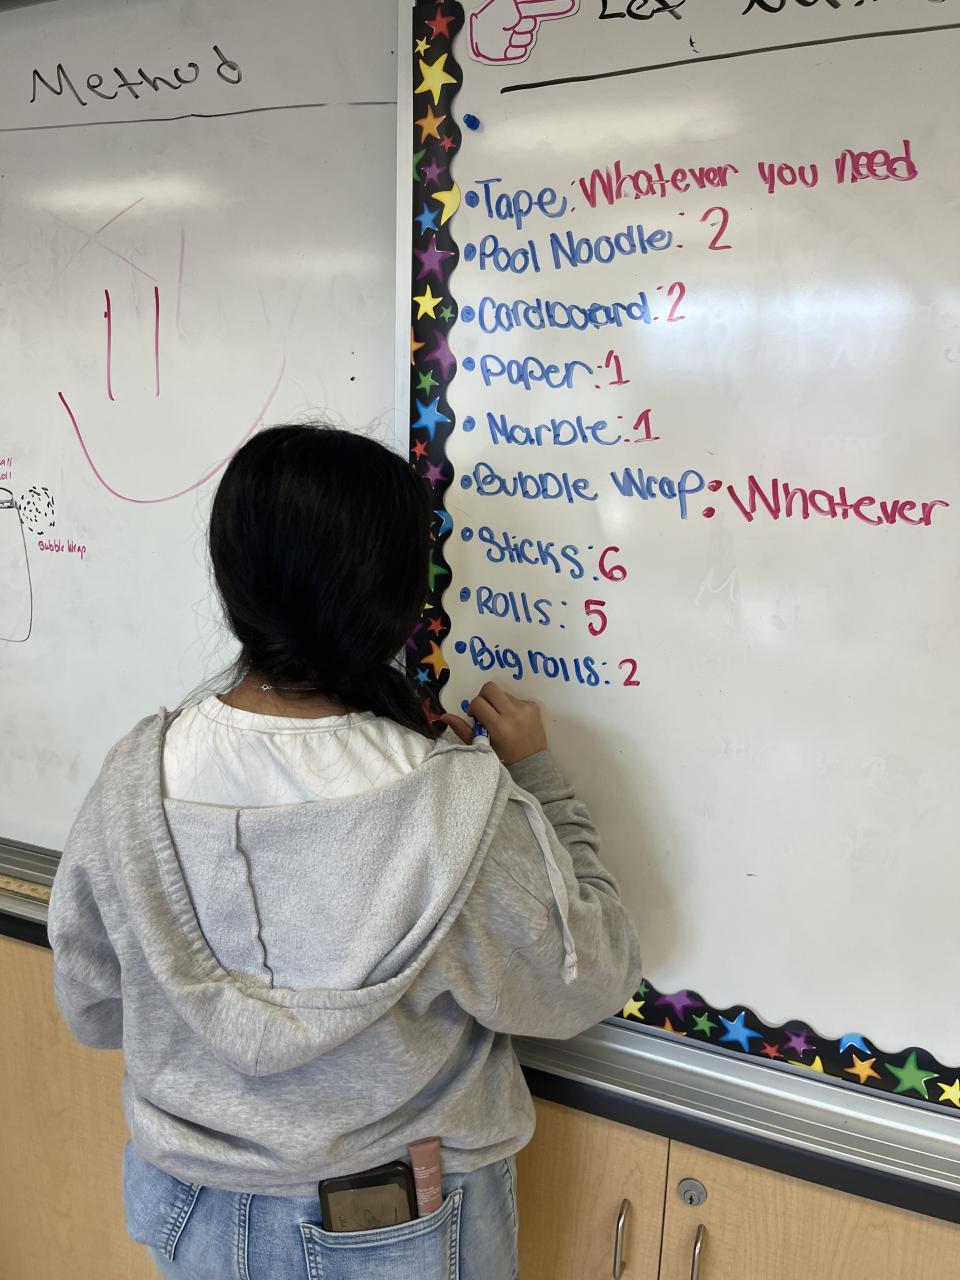 Method
Tape: Whatever you need
Pool Noodle: 2
Cardboard: 2
Paper: 1
Marble: 1
Bubble Wrap: Whatever
Sticks: 6
Rolls: 5
Big rolls: 2
Bubble Wrap